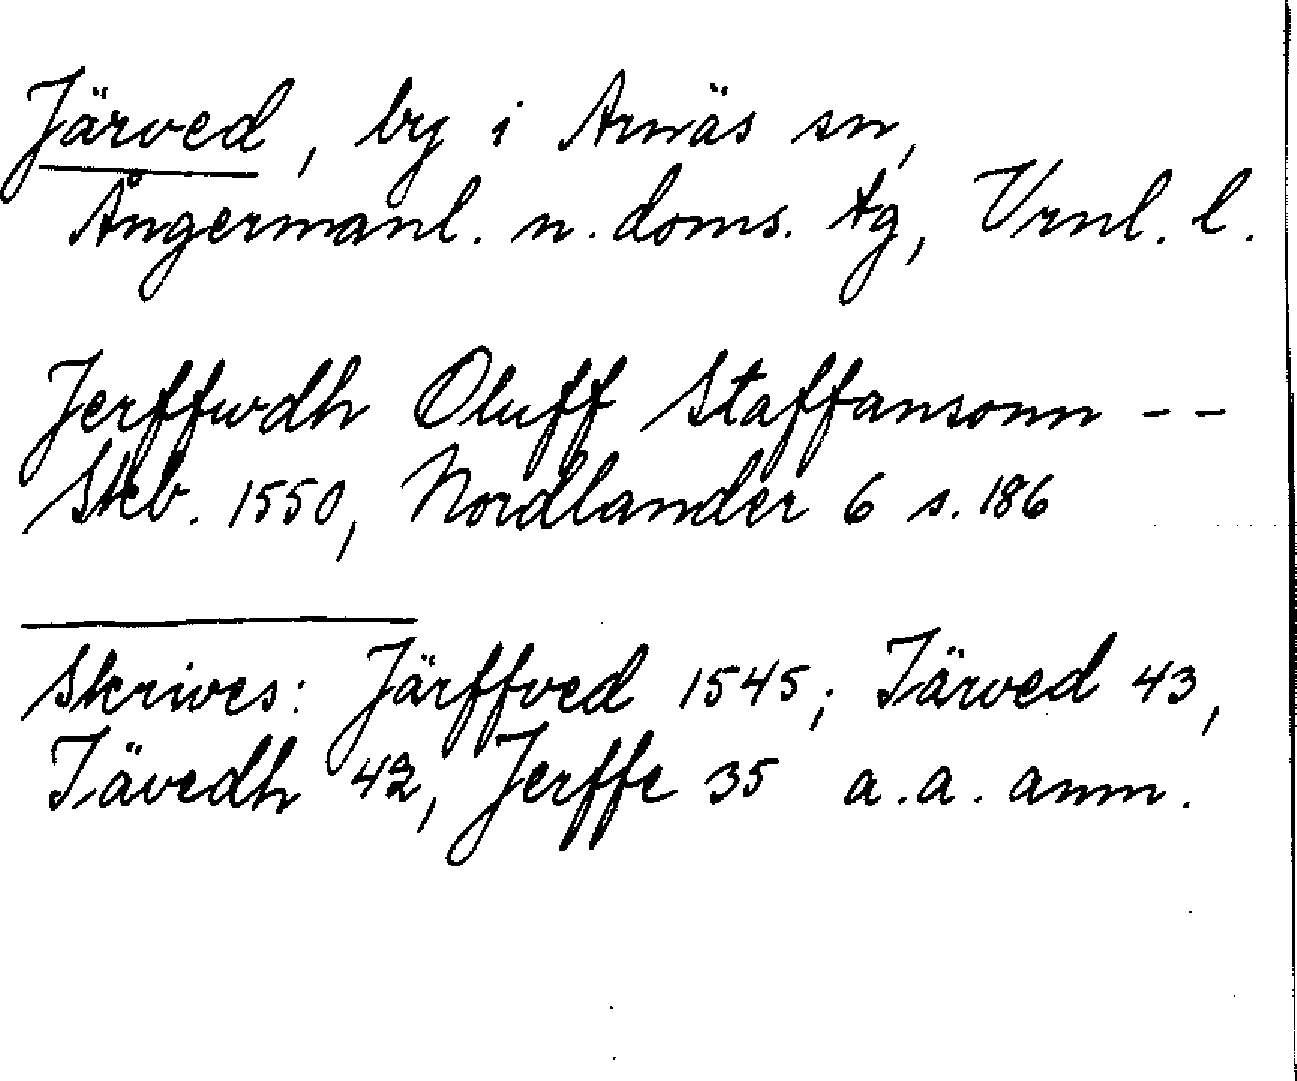 Järved, by i Arnäs sn,
Ångermanl. n. doms. tg, Vrnl. l.
Jerffwdh Oluff Staffansonn - -
Skb. 1550, Nordlander 6 s. 186
Skrives: Järffved 1545; Järved 43,
Jävedh 42, Jerffe 35 a. a. anm.